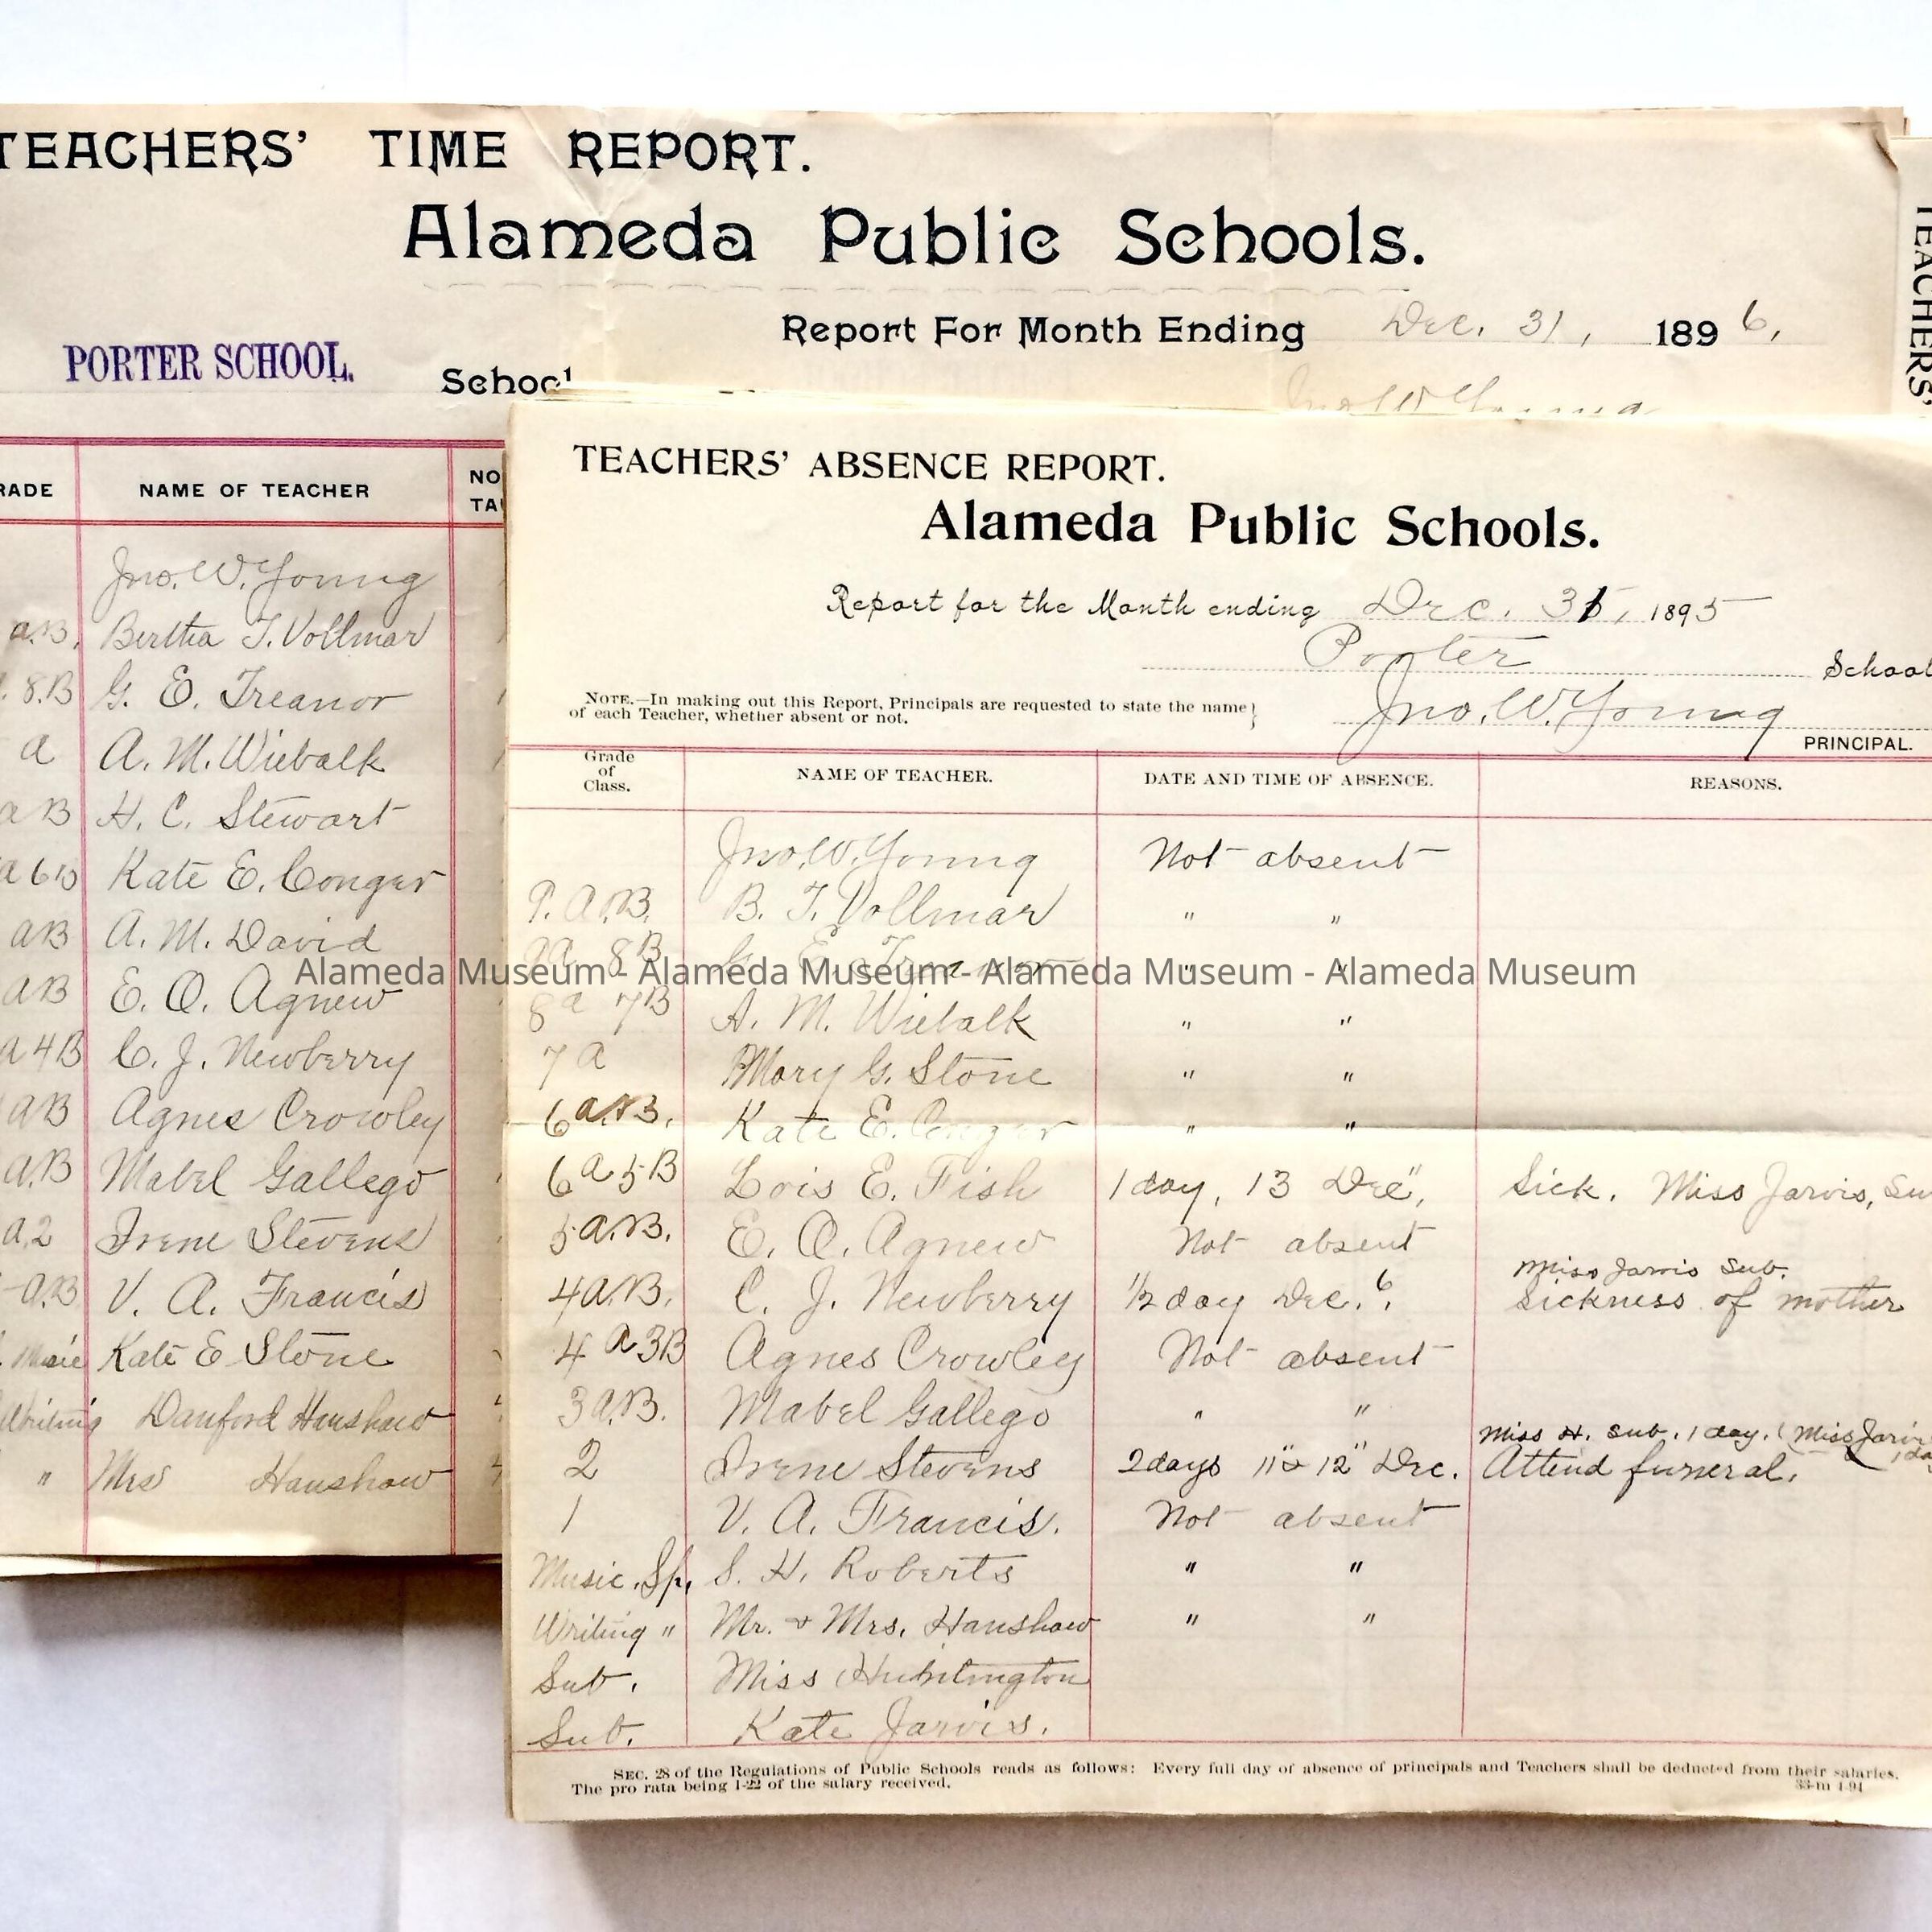 TEACHERS' TIME REPORT.
Alameda Public Schools.
Report For Month Ending Dec. 31, 1896,
PORTER SCHOOL. School
RADE NAME OF TEACHER NO
TA
Jno. W. Young
a.B. Bertha T. Vollmar
8.B G. E. Treanor
a A. M. Wiebalk
a B H. C. Stewart
a 6 B Kate E. Conger
a B A. M. David
a B E. O. Agnew
a 4 B C. J. Newberry
a B Agnes Crowley
a.B Mabel Gallego
a.2 Irene Stevens
a.B V. A. Francis
Music Kate E Stone
Writing Danford Hanshaw
" Mrs Hanshaw
TEACHERS'
TEACHERS' ABSENCE REPORT.
Alameda Public Schools.
Report for the Month ending Dec. 31, 1895
Porter School
NOTE.—In making out this Report, Principals are requested to state the name
of each Teacher, whether absent or not.
Jno. W. Young
PRINCIPAL.
Grade of Class. NAME OF TEACHER. DATE AND TIME OF ABSENCE. REASONS.
Jno. W. Young Not absent
9. a.B. B. T. Vollmar " "
9a 8B G. E. Treanor " "
8a 7B A. M. Wiebalk " "
7 a Mary G. Stone " "
6 a.B. Kate E. Conger " "
6 a 5 B Lois E. Fish 1 day, 13 Dec", Sick. Miss Jarvis, Su
5 a.B. E. O. Agnew Not absent
Miss Jarvis Sub.
4 a.B. C. J. Newberry 1/2 day Dec. 6. Sickness of mother
4 a 3B Agnes Crowley Not absent
3 a.B. Mabel Gallego " "
Miss H. Sub. 1 day. (Miss Jarvi
1 da
2 Irene Stevens 2 days 11" & 12" Dec. Attend funeral.
1 V. A. Francis. Not absent
Music. Sp. S. H. Roberts " "
Writing " Mr. & Mrs. Hanshaw " "
Sub. Miss Huntington
Sub. Kate Jarvis.
SEC. 28 of the Regulations of Public Schools reads as follows: Every full day of absence of principals and Teachers shall be deducted from their salaries.
The pro rata being 1-22 of the salary received.
33-m 1-94
Alameda Museum - Alameda Museum - Alameda Museum - Alameda Museum